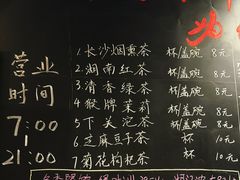 为
营业
时间
7:00
21:00
1长沙烟熏茶 杯/盖碗 8元
2.湘南红茶 杯/盖碗 8元
3.清香绿茶 杯/盖碗 8元
4.猴牌茉莉 杯/盖碗 8元
5.下关沱茶 杯/盖碗 8元
6芝麻豆子茶 杯 10元
7菊花枸杞茶 杯 10元